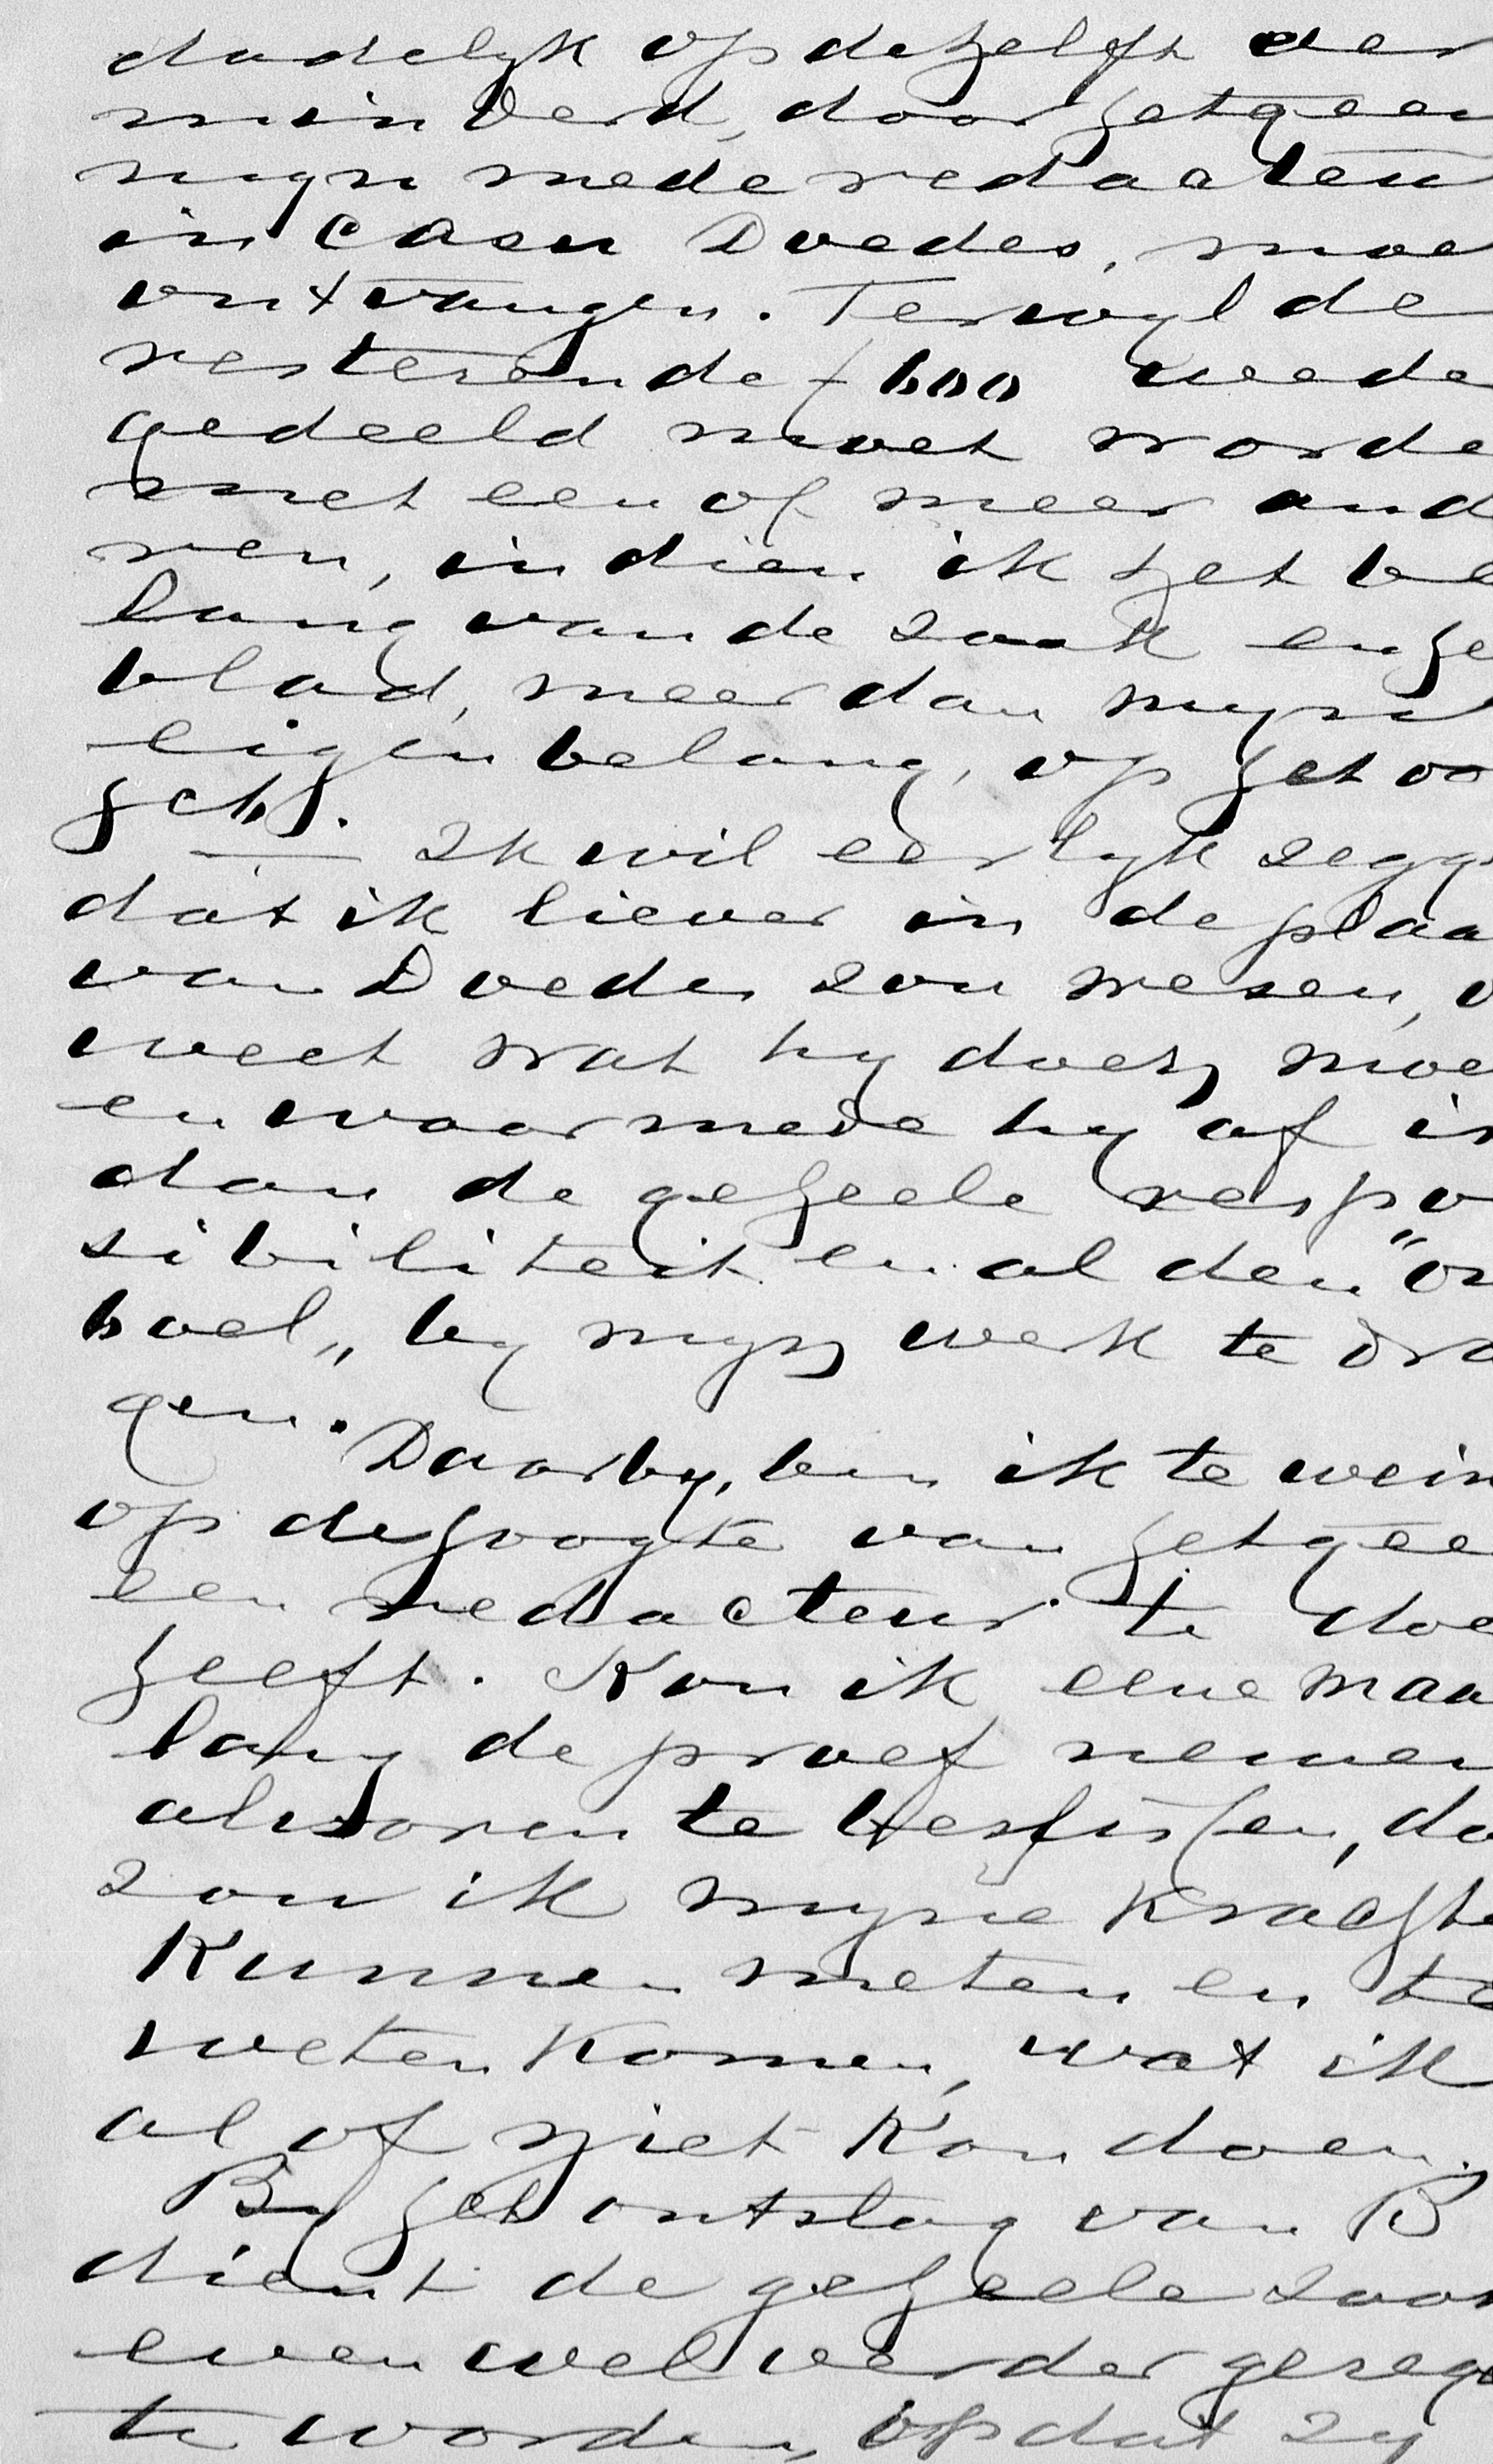 dadelyk op de helft ver
minderd, door hetgeen
myn mederedacteur
in casu Doedes, moe
ontvangen. Terwyl de
resterende f 600 weede
gedeeld moet worde
met een of meer and
ren, indien ik het be
lang van de zaak en he
blad, meer dan myn
eigen belang, op het oo
heb.
Ik wil eerlyk zegge
dat ik liever in de plaa
van Doedes zou wezen, d
weet wat hy doen moe
en waarmede hy af is
dan de geheele respo
sibiliteit en al den "on
boel" by myn werk te dra
gen.
Daarby, ben ik te wein
op de hoogte van hetgee
een redacteur te doe
heeft. Kon ik eene maa
lang de proef nemen
alvorens te beslissen, da
zou ik myne krachte
kunnen meten en te
weten komen, wat ik
al of niet kon doen.
By het ontslag van B
dient de geheele zaak
evenwel verder gerege
te worden, opdat zy